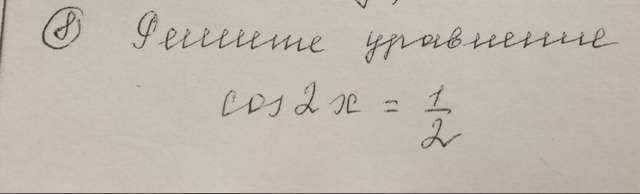 ⑧ Решите уравнение
cos2x = 1/2